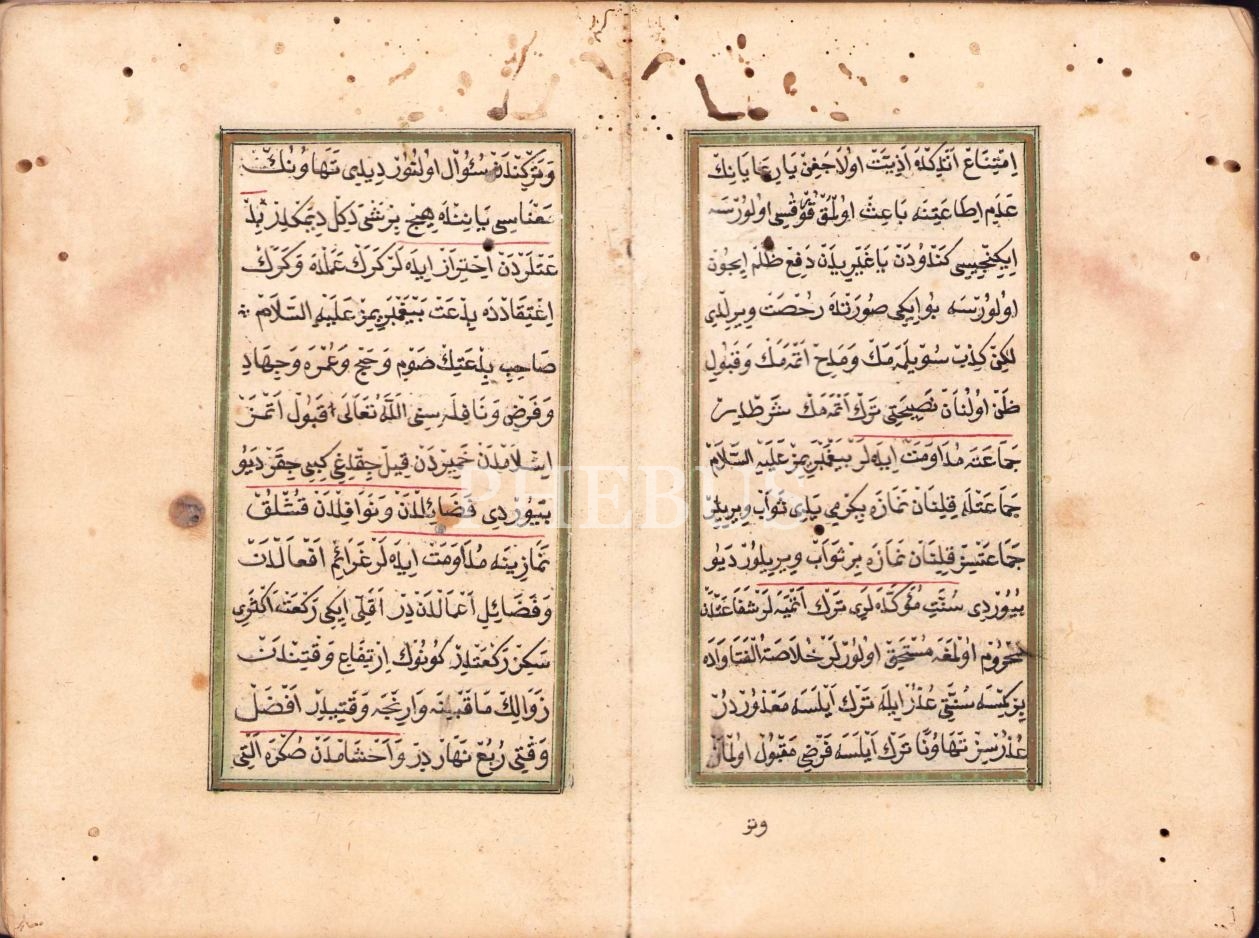 اِمْتِنَاعْ اَتْدِكْدَه اَذِيَّتْ اولَاجَغِنْ يَارِعَايَانِكْ
عَدَمِ اِطَاعَتِنَه بَاعِثْ اوُلْمَقْ قُوْقُسِى اوُلُورْسَه
اِيكِنْجِيسِى كَنْدُودَنْ يَا غَيْرِيدَنْ دَفْعِ ظُلْمْ اِيچُونْ
اوُلُورْسَه بُو اِيكِى صُورَتْدَه رُخْصَتْ وِيرِلْدِى
لكِنْ كِذِبْ سُويْلَمَه مَكْ وَمَدِحْ اتْمَه مَكْ وَقَبُولِ
ظَنْ اوُلُنَانْ نَصِيحَتِى تَرْكْ اتْمَه مَكْ شَرْطْدِرْ
جَمَاعَتَه مُدَاوَمَتْ اِيدَه لَرْ پَيْغَمْبَرِيمِزْ عَلَيْهِ السَّلَامْ
جَمَاعَتْلَه قِلِنَانْ نَمَازَه يِكِرْمِى يَدِى ثَوَابْ وِيرِيلِرْ
جَمَاعَتْسِزْ قِلِنَانْ نَمَازَه بِرْ ثَوَابْ وِيرِيلُورْ دَيُو
بُيُورْدِى سُنَّتِ مُؤَكَّدَه لَرِى تَرْكْ اتْمِيَه لَرْ شَفَاعَتْدَنْ
مَحْرُومْ اوُلْمَغَه مُسْتَحِقْ اوُلُورْلَرْ خُلَاصَةُ الْفَتَاوَادَه
بِرْ كِمْسَه سُنَّتِى عُذْرْ اِيلَه تَرْكْ اَيْلَسَه مَعْذُورْدُرْ
عُذُرْسِزْ تَهَاوُنًا تَرْكْ اَيْلَسَه فَرْضِى مَقْبُولْ اوُلْمَازْ
وتر
وَتَرْكِنْدَنْ سُؤَالْ اوُلُنُورْ دِيدِى تَهَاوُنُكْ
مَعْنَاسِى يَانِنْدَه هِيچْ بِرْ شَىْ دَكِلْ دِيمَكْدِرْ بِدْ
عَتْلَرْدَنْ اِحْتِرَازْ اِيدَه لَرْ كَرَكْ عَمَلْدَه وَكَرَكْ
اِعْتِقَادْدَه بِدْعَتْ پَيْغَمْبَرِيمِزْ عَلَيْهِ السَّلَامْ
صَاحِبِ بِدْعَتِكْ صَوْم وَحَجْ وَعُمْرَه وَجِهَادِ
وَفَرْضِ وَنَافِلَه سِنِى اللّٰه تَعَالَى قَبُولْ اتْمَزْ
اِسْلَامْدَنْ خَمِيرْدَنْ قِيلْ چِقْدِغِى كِبِى چِقَرْ دَيُو
بُيُورْدِى فَضَائِلْدَنْ وَنَوَافِلْدَنْ قُشْلُقْ
نَمَازِينَه مُدَاوَمَتْ اِيدَه لَرْ غَرَائِمِ اَفْعَالْدَنْ
وَفَضَائِلِ اَعْمَالْدَنْدِرْ اَقَلِّى اِيكِى رَكْعَتْ اَكْثَرِى
سَكِزْ رَكْعَتْدِرْ كُونُوكْ اِرْتِفَاعِ وَقْتِنْدَنْ
زَوَالِكْ مَا قَبْلِينَه وَارِنْجَه وَقْتِيدِرْ اَفْضَلْ
وَقْتِى رُبُعْ نَهَارْدِرْ وَاَخْشَامْدَنْ صُكْرَه اَلْتِى
PHEBUS